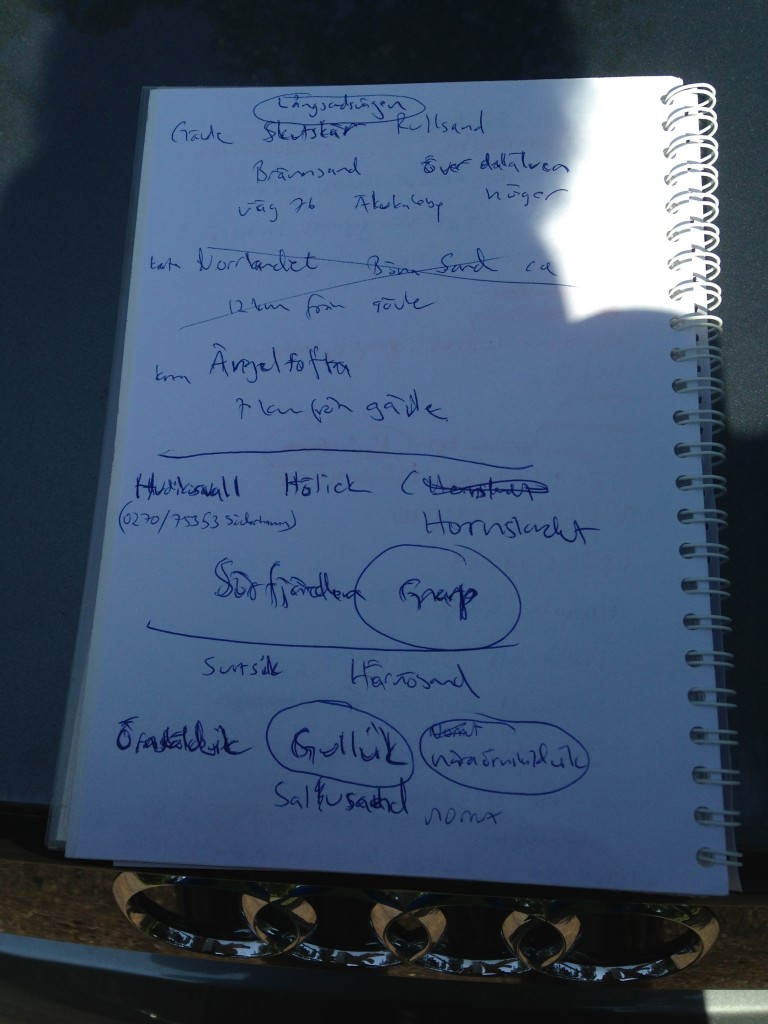 Långsandsvägen
Gävle Skutskär Rullsand
Brännsand Över dalälven
väg 76 Älvkarleby höger
Norrlandet Bönan Sand ca
12 km från gävle
km Ängeltofta
7 km från gävle
Hudiksvall Hölick (
(0270/75353 Söderhamn) Hornslandet
Sörfjärden Gnarp
Härnösand
Örnsköldsvik Gullvik
nära örnsköldsvik
Saltvusand norr